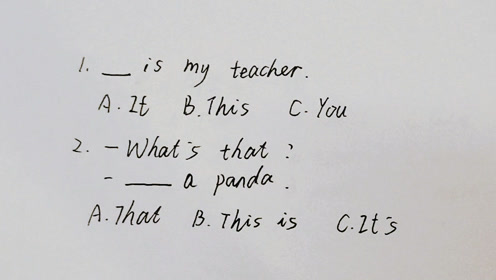 1. __ is my teacher.
A. It B. This C. You
2. - What's that ?
- ___ a panda.
A. That B. This is C. It's